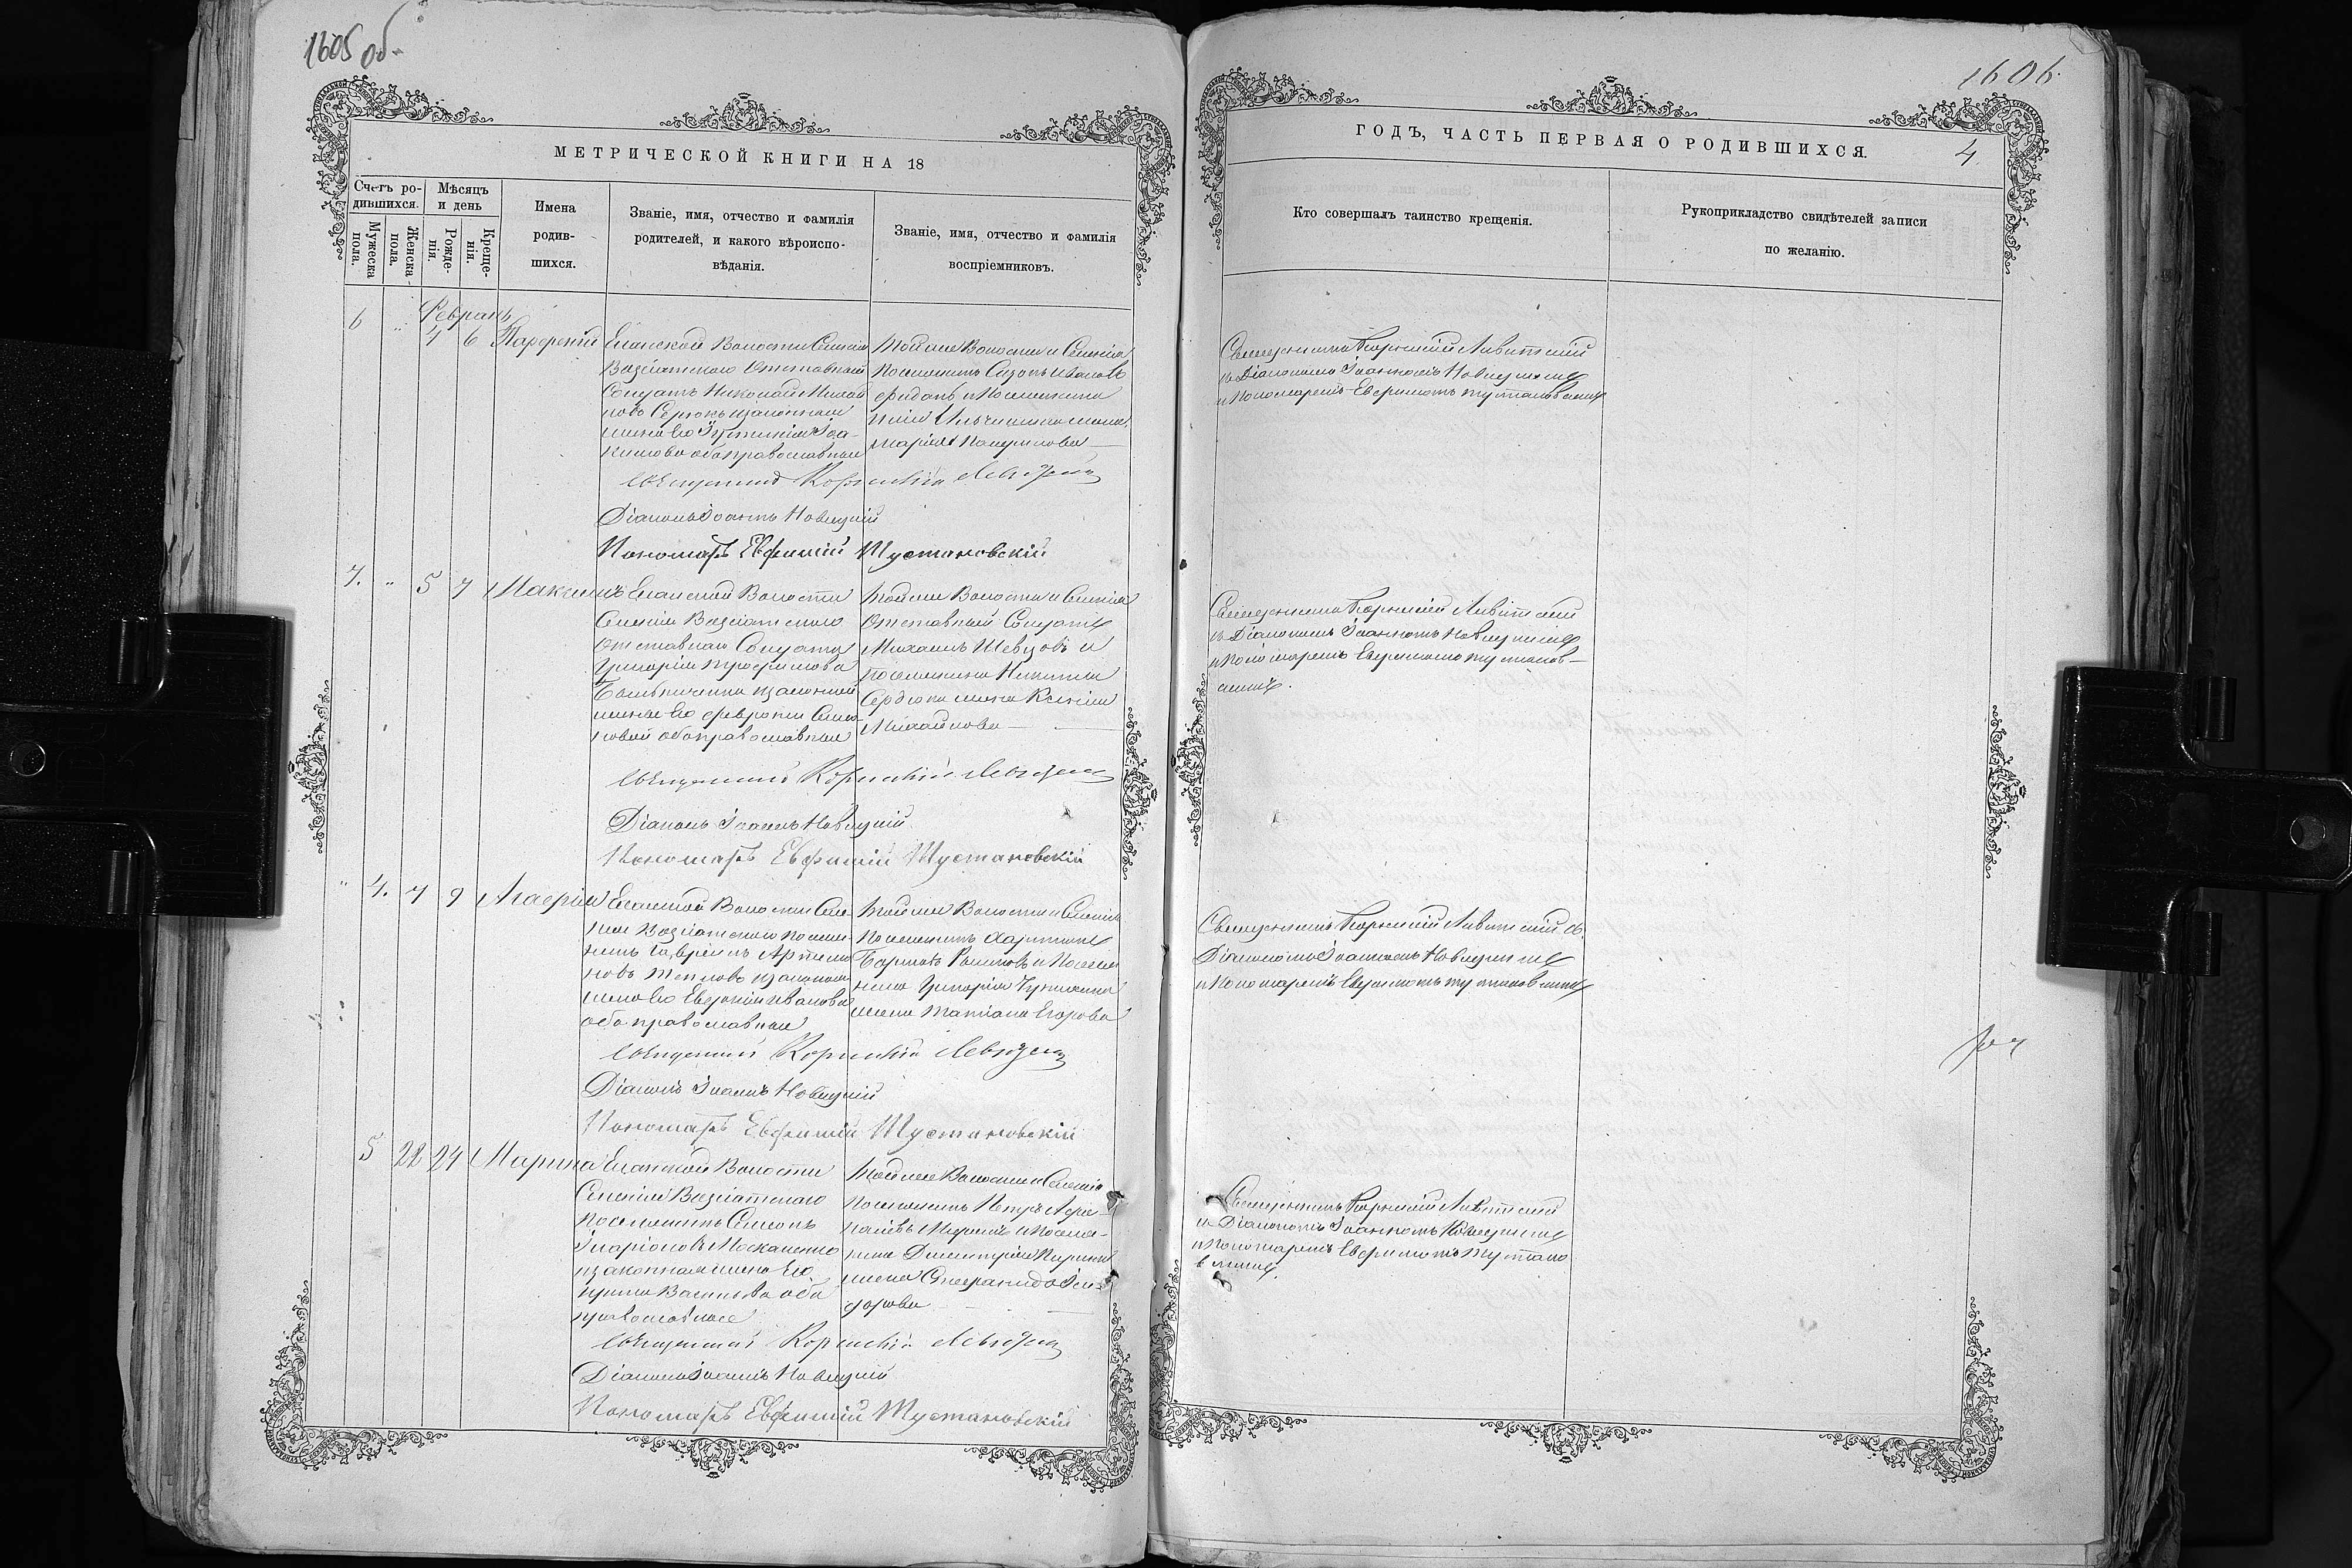 1605 об.
МЕТРИЧЕСКОЙ КНИГИ НА 18
Счетъ родившихся.
Мужеска пола.
Женска пола.
Мѣсяцъ и день
Рожденія.
Крещенія.
Имена
родив-
шихся.
Званіе, имя, отчество и фамилія
родителей, и какого вѣроиспо-
вѣданія.
Званіе, имя, отчество и фамилія
воспріемниковъ.
Февраль
6 " 4 6 Парфеній
Еланской Волости Селенія
Возсіатскаго Отставный
Солдатъ Николай
законная
жена его
оба православные
Той же Волости и Селенія
Поселянинъ
и Поселянина
жена
Марія
Священникъ Корнилій Левитскій
Діаконъ Іоаннъ Новицкій
Пономарь Евфимій Тустановскій
7. " 5 7 Максимъ
Еланской Волости
Селенія Возсіатскаго
Отставнаго Солдата
Григорія Трофимова
законной
жены его Февроніи
оба православные
Той же Волости и Селенія
Отставный Солдатъ
Михаилъ Шевцовъ и
поселянина Никиты
Сердюка жена Ксенія
Михайлова
Священникъ Корнилій Левитскій
Діаконъ Іоаннъ Новицкій
Пономарь Евфимій Тустановскій
" 4. 7 9 Агафія
Еланской Волости Селе-
нія Возсіатскаго поселя-
нинъ Гавріилъ Артемо-
новъ законная
жена его Евдокія Иванова
оба православные
Той же Волости и Селенія
Поселянинъ Харитонъ
и Поселя-
нина Григорія
жена Татіана Егорова
Священникъ Корнилій Левитскій
Діаконъ Іоаннъ Новицкій
Пономарь Евфимій Тустановскій
5 22 24 Марина
Еланской Волости
Селенія Возсіатскаго
поселянинъ Симеонъ
Иларіоновъ Москаленко
законная жена его
Ирина Васильева оба
православные
Той же Волости и Селенія
поселянинъ Петръ
и поселя-
нина Димитрія
жена Степанида Иси-
дорова
Священникъ Корнилій Левитскій
Діаконъ Іоаннъ Новицкій
Пономарь Евфимій Тустановскій
1606.
ГОДЪ, ЧАСТЬ ПЕРВАЯ О РОДИВШИХСЯ.
4.
Кто совершалъ таинство крещенія.
Рукоприкладство свидѣтелей записи
по желанію.
Священникъ Корнилій Левитскій
съ Діакономъ Іоанномъ Новицкимъ
и Пономаремъ Евфимомъ Тустановскимъ
Священникъ Корнилій Левитскій
съ Діакономъ Іоанномъ Новицкимъ
и Пономаремъ Евфимомъ Тустанов-
скимъ.
Священникъ Корнилій Левитскій съ
Діакономъ Іоанномъ Новицкимъ
и Пономаремъ Евфимомъ Тустановскимъ
Священникъ Корнилій Левитскій
съ Діакономъ Іоанномъ Новицкимъ
и Пономаремъ Евфимомъ Тустано
вскимъ.